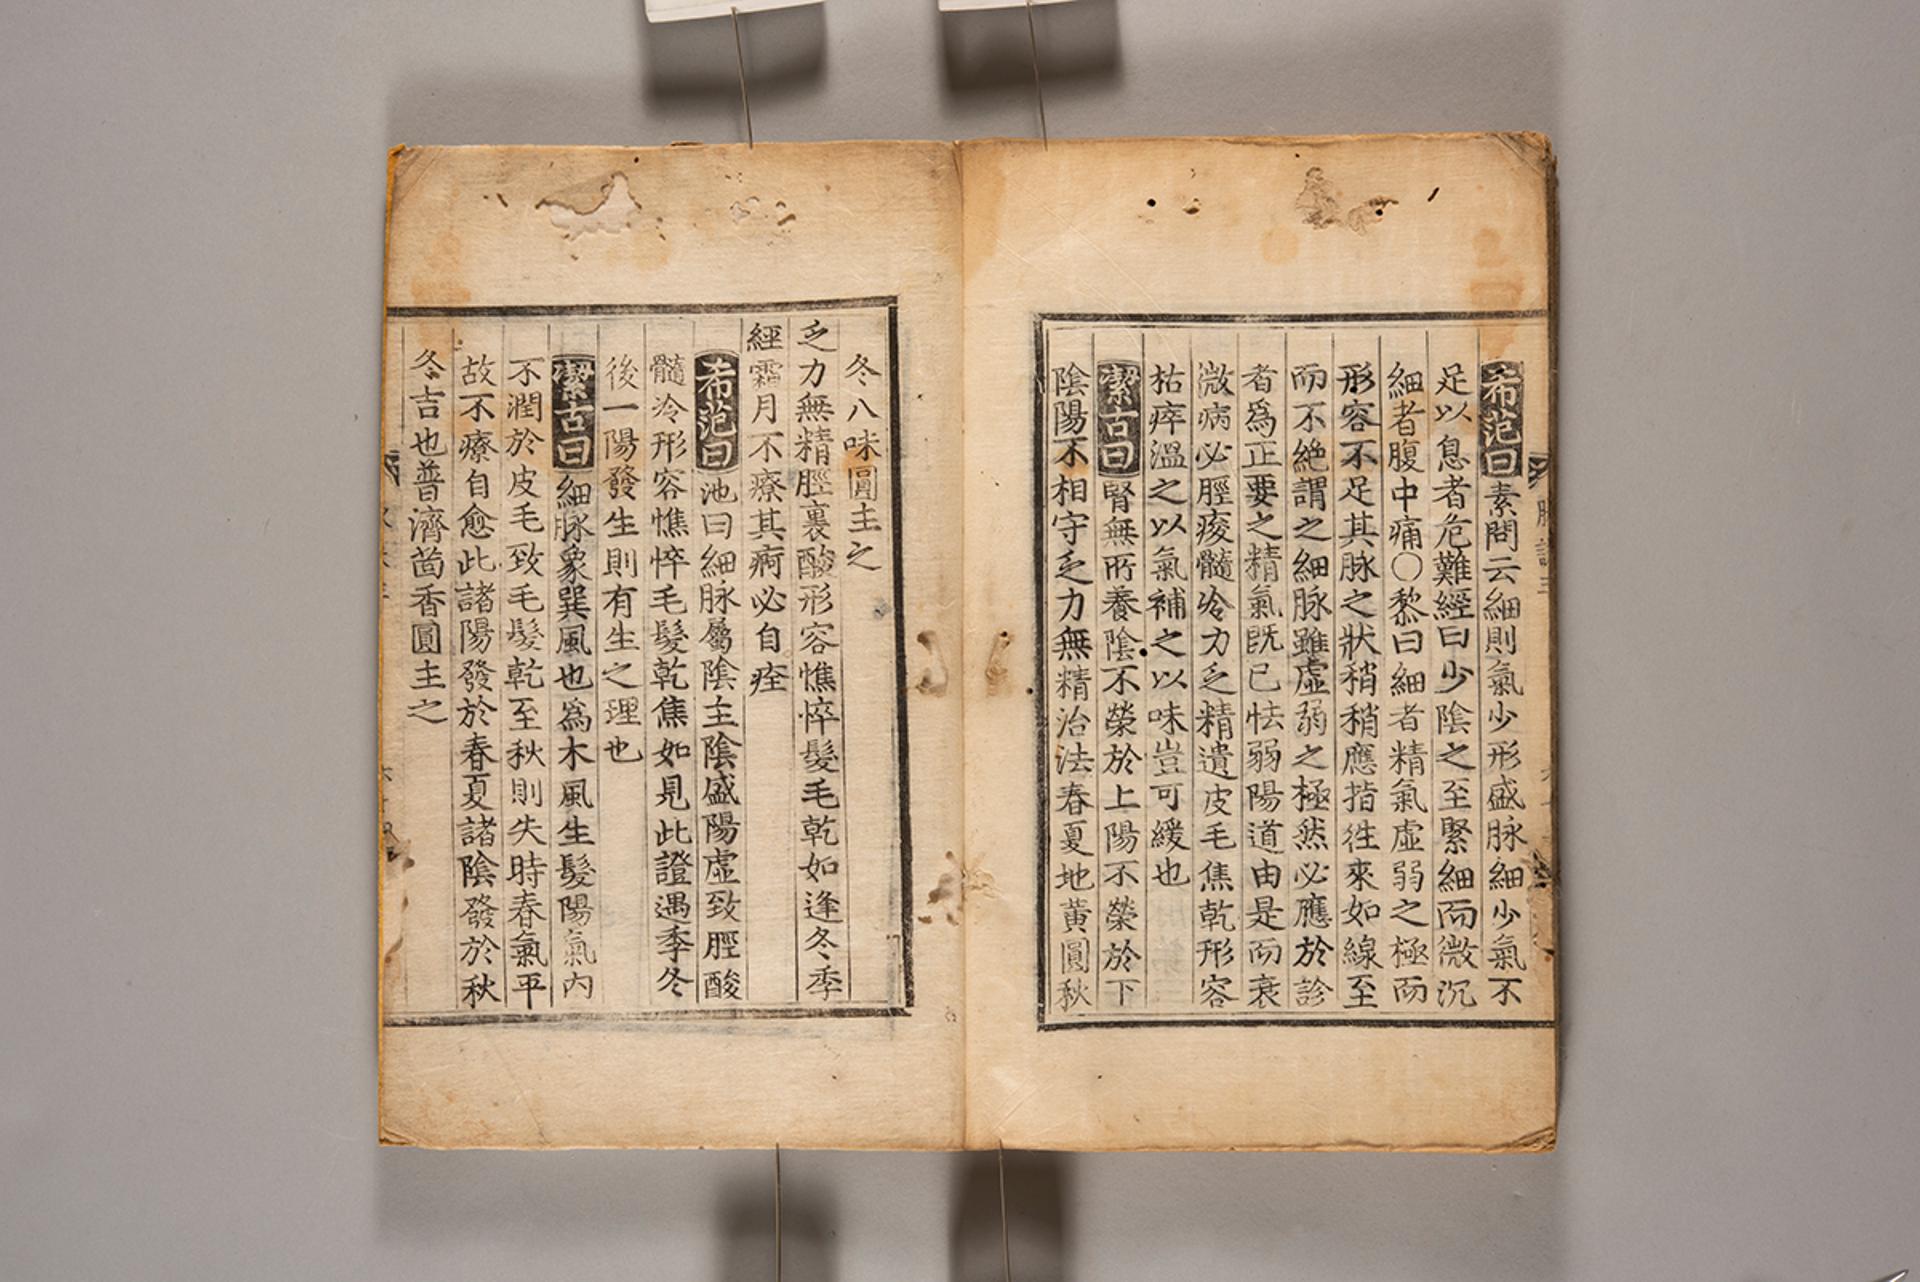 希范曰素問云細則氣少形盛脉細少氣不
足以息者危難經曰少陰之至緊細而微沉
細者腹中痛〇黎曰細者精氣虛弱之極而
形容不足其脉之狀稍稍應指徃來如線至
而不絶謂之細脉雖虛弱之極然必應於診
者爲正要之精氣旣已怯弱陽道由是而衰
微病必脛痠髓冷力乏精遺皮毛焦乾形容
枯瘁溫之以氣補之以味豈可緩也
潔古曰腎無所養陰不榮於上陽不榮於下
陰陽不相守乏力無精治法春夏地黃圓秋
冬八味圓主之
乏力無精脛裏酸形容憔悴髮毛乾如逢冬季
經霜月不療其痾必自痊
希范曰池曰細脉屬陰主陰盛陽虛致脛酸
髓冷形容憔悴毛髮乾焦如見此證遇季冬
後一陽發生則有生之理也
潔古曰細脉象巽風也爲木風生髮陽氣内
不潤於皮毛致毛髮乾至秋則失時春氣平
故不療自愈此諸陽發於春夏諸陰發於秋
冬吉也普濟茴香圓主之